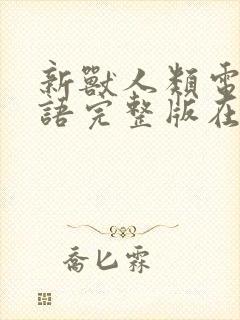 新獸人類電
語完整版在
喬匕霖